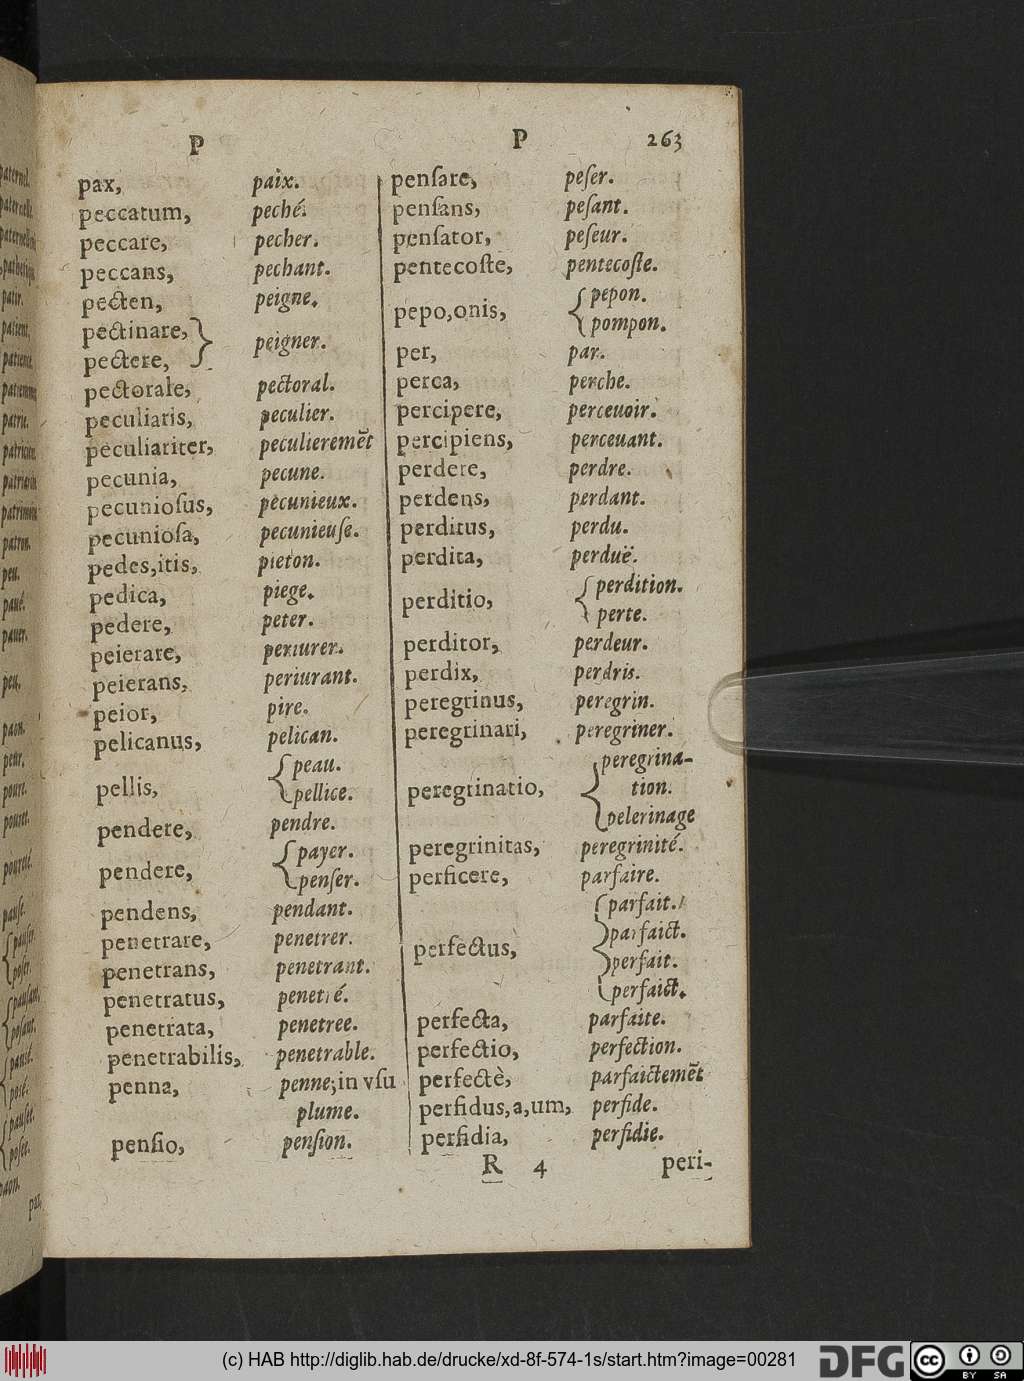 P P 263
pax, paix.
peccatum, peché.
peccare, pecher.
peccans, pechant.
pecten, peigne.
pectinare,
pectere, } peigner.
pectorale, pectoral.
peculiaris, peculier.
peculiariter, peculieremẽt
pecunia, pecune.
pecunioſus, pecunieux.
pecunioſa, pecunieuſe.
pedes,itis, pieton.
pedica, piege.
pedere, peter.
peierare, periurer.
peierans, periurant.
peior, pire.
pelicanus, pelican.
pellis, { peau.
pellice.
pendere, pendre.
pendere, { payer.
penſer.
pendens, pendant.
penetrare, penetrer.
penetrans, penetrant.
penetratus, penetré.
penetrata, penetree.
penetrabilis, penetrable.
penna, penne;in vſu
plume.
penſio, penſion.
penſare, peſer.
penſans, peſant.
penſator, peſeur.
pentecoſte, pentecoſte.
pepo,onis, { pepon.
pompon.
per, par.
perca, perche.
percipere, perceuoir.
percipiens, perceuant.
perdere, perdre.
perdens, perdant.
perditus, perdu.
perdita, perduë.
perditio, { perdition.
perte.
perditor, perdeur.
perdix, perdris.
peregrinus, peregrin.
peregrinari, peregriner.
peregrinatio, { peregrina-
tion.
pelerinage
peregrinitas, peregrinité.
perficere, parfaire.
perfectus, { parfait.
parfaict.
perfait.
perfaict.
perfecta, parfaite.
perfectio, perfection.
perfectè, parfaictemẽt
perfidus,a,um, perfide.
perfidia, perfidie.
R 4 peri-
(c) HAB http://diglib.hab.de/drucke/xd-8f-574-1s/start.htm?image=00281
DFG
cc BY SA